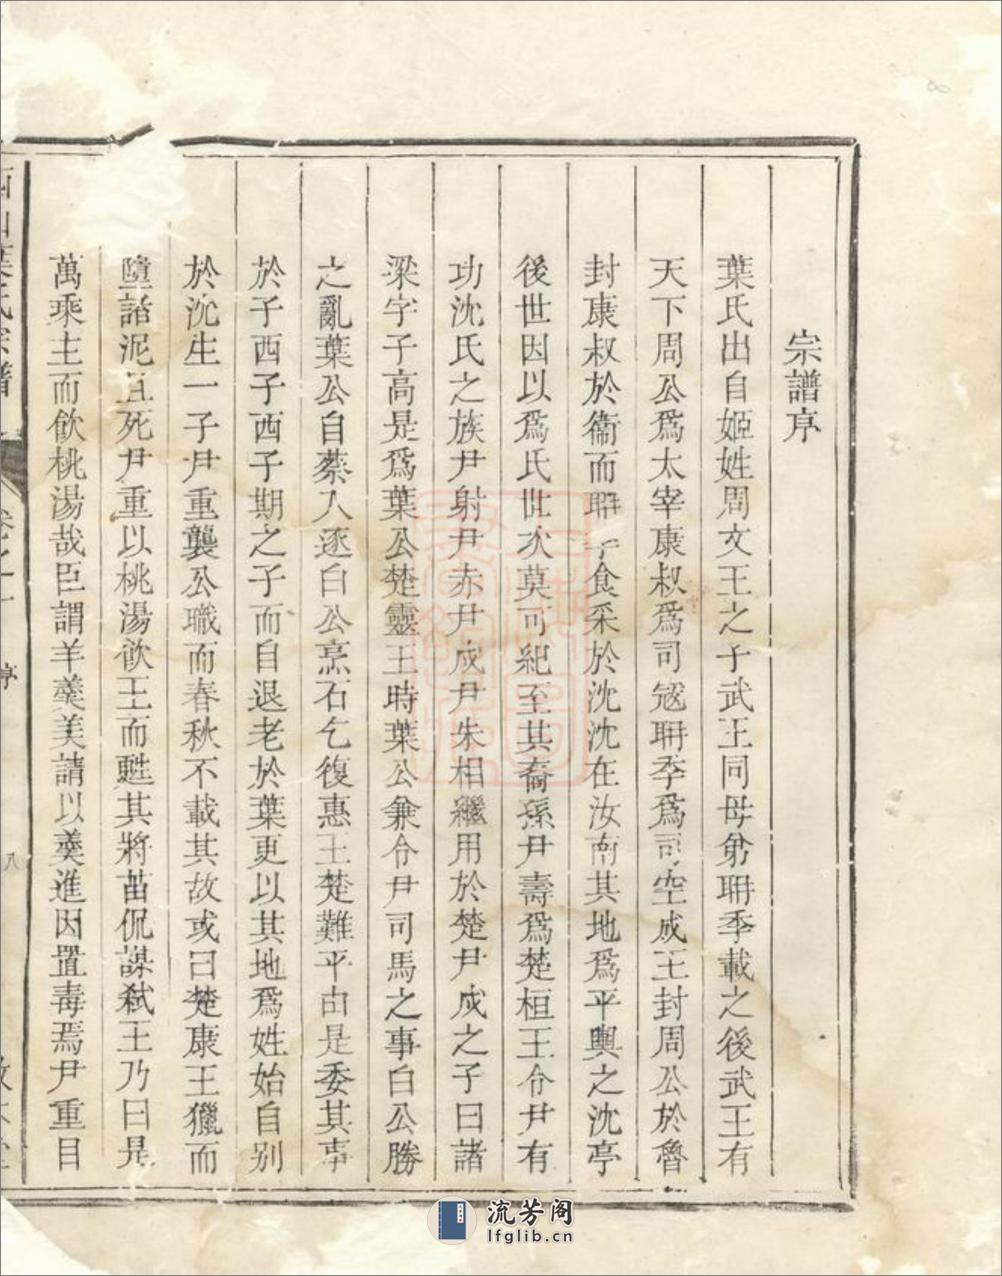 宗譜序
葉氏出自姬姓周文王之子武王同母弟聃季載之後武王有
天下周公爲太宰康叔爲司寇聃季爲司空成王封周公於魯
封康叔於衞而聃子食采於沈沈在汝南其地爲平輿之沈亭
後世因以爲氏世次莫可紀至其裔孫尹壽爲楚桓王令尹有
功沈氏之族尹射尹赤尹戍尹朱相繼用於楚尹戍之子曰諸
梁字子高是爲葉公楚靈王時葉公兼令尹司馬之事白公勝
之亂葉公自蔡入逐白公烹石乞復惠王楚難平由是委其事
於子西子西子期之子而自退老於葉更以其地爲姓始自别
於沈生一子尹重襲公職而春秋不載其故或曰楚康王獵而
墮諸泥且死尹重以桃湯飲王而甦其將苗侃謀弑王乃曰是
萬乘主而飲桃湯哉臣謂羊羹美請以羹進因置毒焉尹重目
葉氏宗譜
卷之一
序
八
流芳阁
lfglib.cn